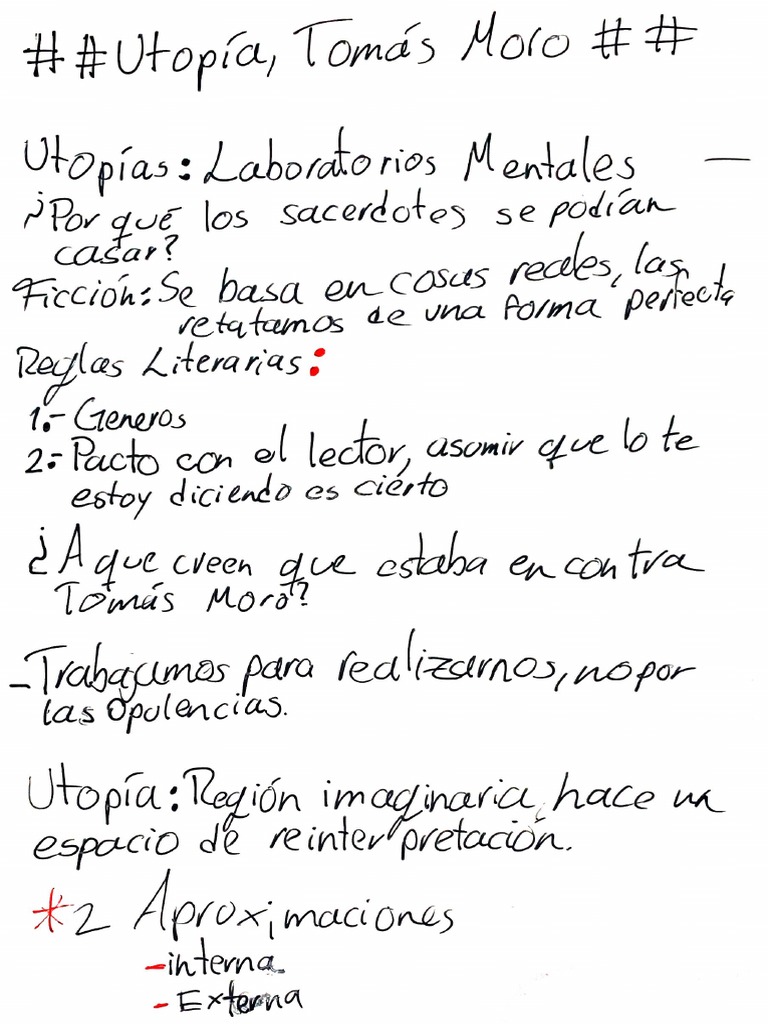 ##Utopía, Tomás Moro ##
Utopías: Laboratorios Mentales —
¿Por qué los sacerdotes se podían
casar?
Ficción: Se basa en cosas reales, las
retatamos de una forma perfecta
Reglas Literarias:
1.- Generos
2.- Pacto con el lector, asumir que lo te
estoy diciendo es cierto
¿A que creen que estaba en contra
Tomás Moro?
-Trabajamos para realizarnos, no por
las opulencias.
Utopía: Región imaginaria, hace un
espacio de reinterpretación.
*2 Aproximaciones
-interna
- Externa